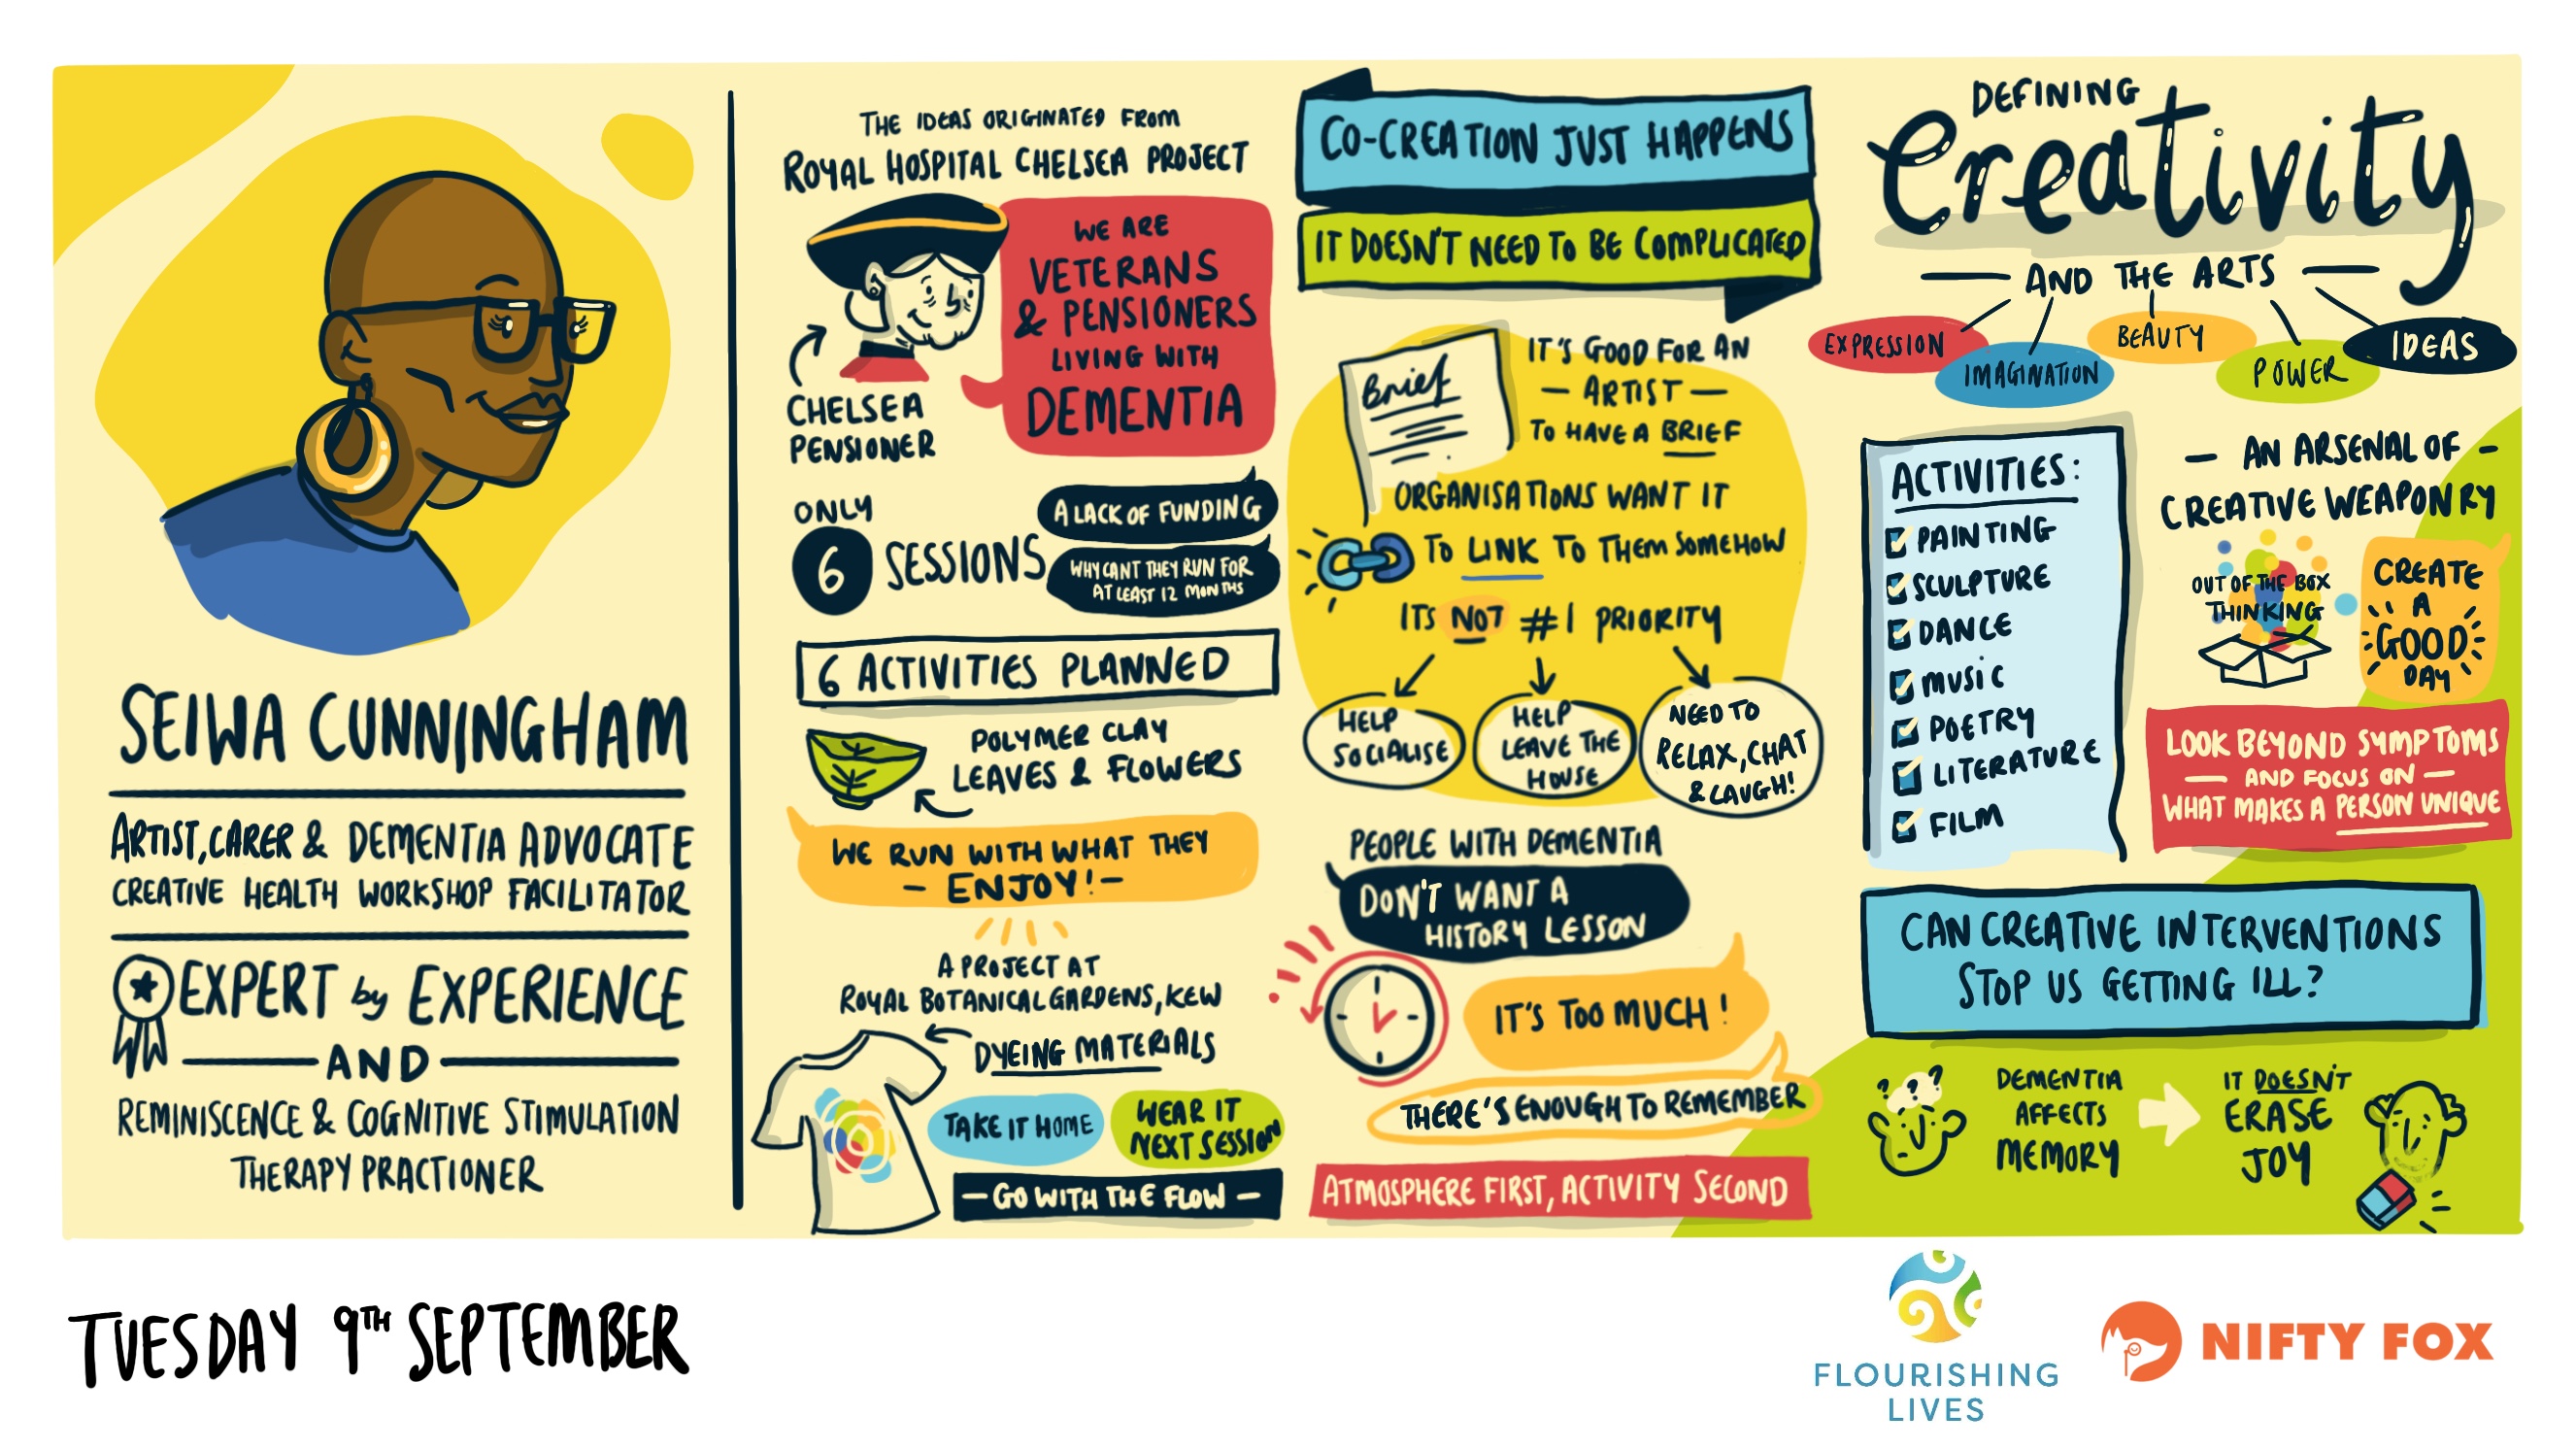 SEIWA CUNNINGHAM
ARTIST, CARER & DEMENTIA ADVOCATE
CREATIVE HEALTH WORKSHOP FACILITATOR
EXPERT by EXPERIENCE
AND
REMINISCENCE & COGNITIVE STIMULATION
THERAPY PRACTIONER
THE IDEAS ORIGINATED FROM
ROYAL HOSPITAL CHELSEA PROJECT
WE ARE
VETERANS
& PENSIONERS
LIVING WITH
DEMENTIA
CHELSEA
PENSIONER
ONLY
6 SESSIONS
A LACK OF FUNDING
WHY CANT THEY RUN FOR
AT LEAST 12 MONTHS
6 ACTIVITIES PLANNED
POLYMER CLAY
LEAVES & FLOWERS
WE RUN WITH WHAT THEY
- ENJOY! -
A PROJECT AT
ROYAL BOTANICAL GARDENS, KEW
DYEING MATERIALS
TAKE IT HOME
WEAR IT
NEXT SESSION
- GO WITH THE FLOW -
CO-CREATION JUST HAPPENS
IT DOESN'T NEED TO BE COMPLICATED
Brief
IT'S GOOD FOR AN
- ARTIST -
TO HAVE A BRIEF
ORGANISATIONS WANT IT
TO LINK TO THEM SOMEHOW
ITS NOT #1 PRIORITY
HELP
SOCIALISE
HELP
LEAVE THE
HOUSE
NEED TO
RELAX, CHAT
& LAUGH!
PEOPLE WITH DEMENTIA
DON'T WANT A
HISTORY LESSON
IT'S TOO MUCH!
THERE'S ENOUGH TO REMEMBER
ATMOSPHERE FIRST, ACTIVITY SECOND
DEFINING
Creativity
- AND THE ARTS -
EXPRESSION
IMAGINATION
BEAUTY
POWER
IDEAS
ACTIVITIES:
PAINTING
SCULPTURE
DANCE
MUSIC
POETRY
LITERATURE
FILM
- AN ARSENAL OF -
CREATIVE WEAPONRY
OUT OF THE BOX
THINKING
CREATE
A
GOOD
DAY
LOOK BEYOND SYMPTOMS
- AND FOCUS ON -
WHAT MAKES A PERSON UNIQUE
CAN CREATIVE INTERVENTIONS
STOP US GETTING ILL?
? ? ?
DEMENTIA
AFFECTS
MEMORY
IT DOESN'T
ERASE
JOY
TUESDAY 9TH SEPTEMBER
FLOURISHING
LIVES
NIFTY FOX